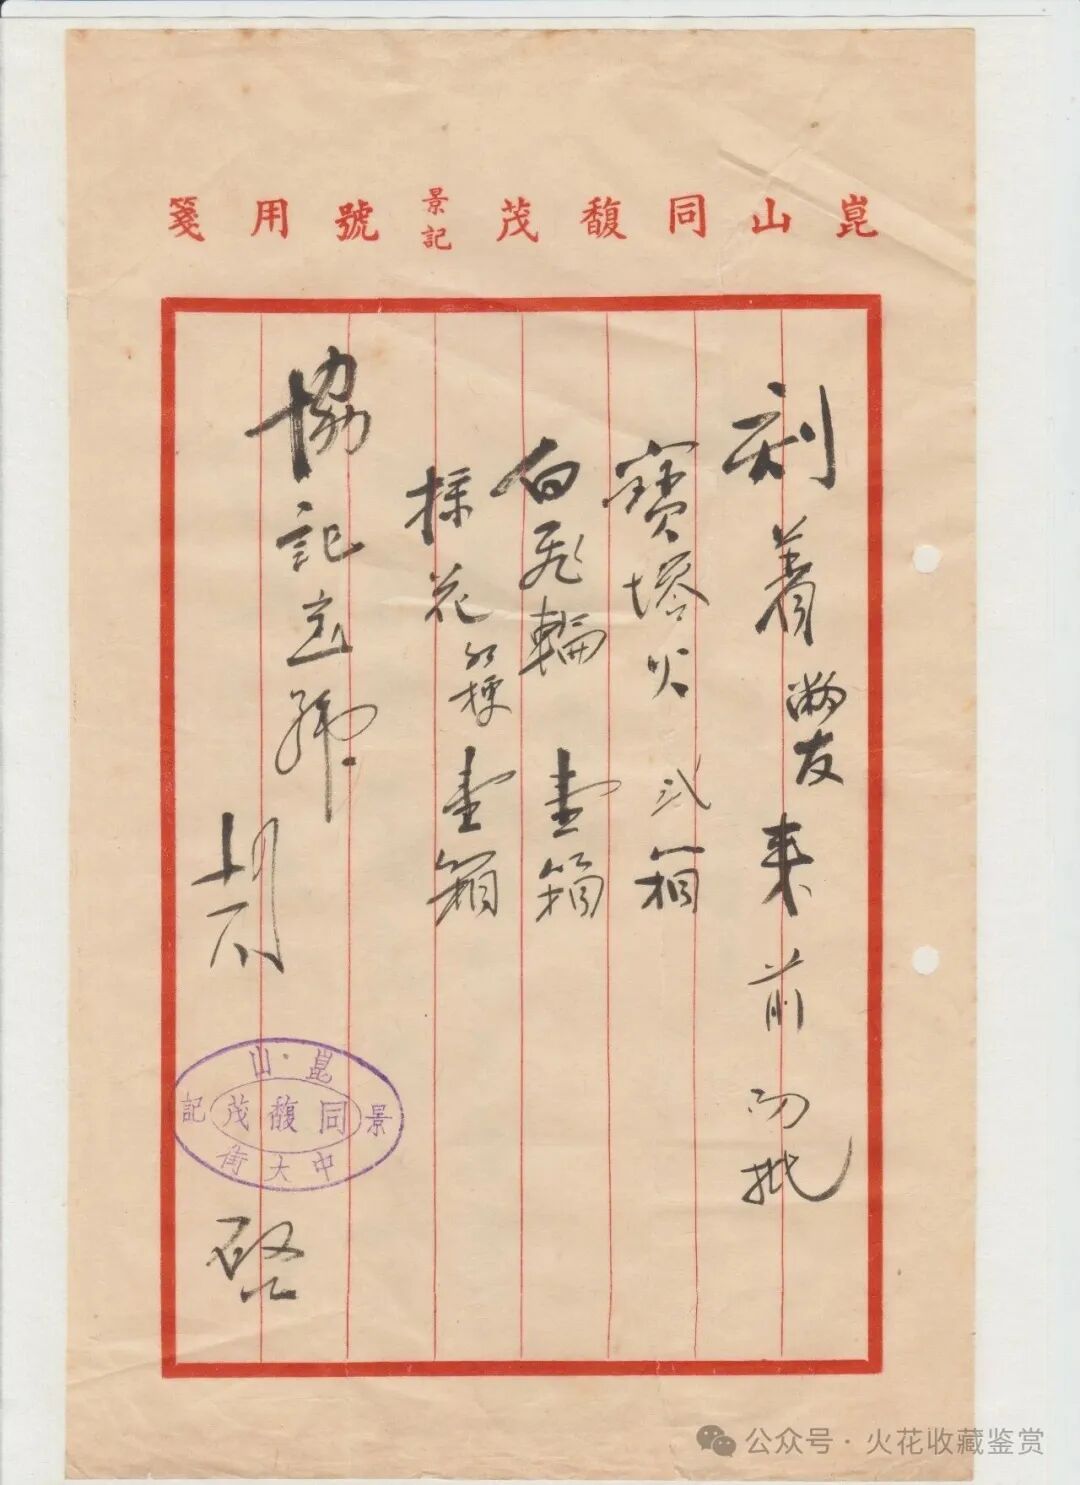 崑山同馥茂景記號用箋
刻着敝友來前 批
寶塔火弍箱
白飛輪壹箱
採花紅梗壹箱
協記寶號
崑山
景記
同馥茂
中大街
啓
公众号·火花收藏鉴赏